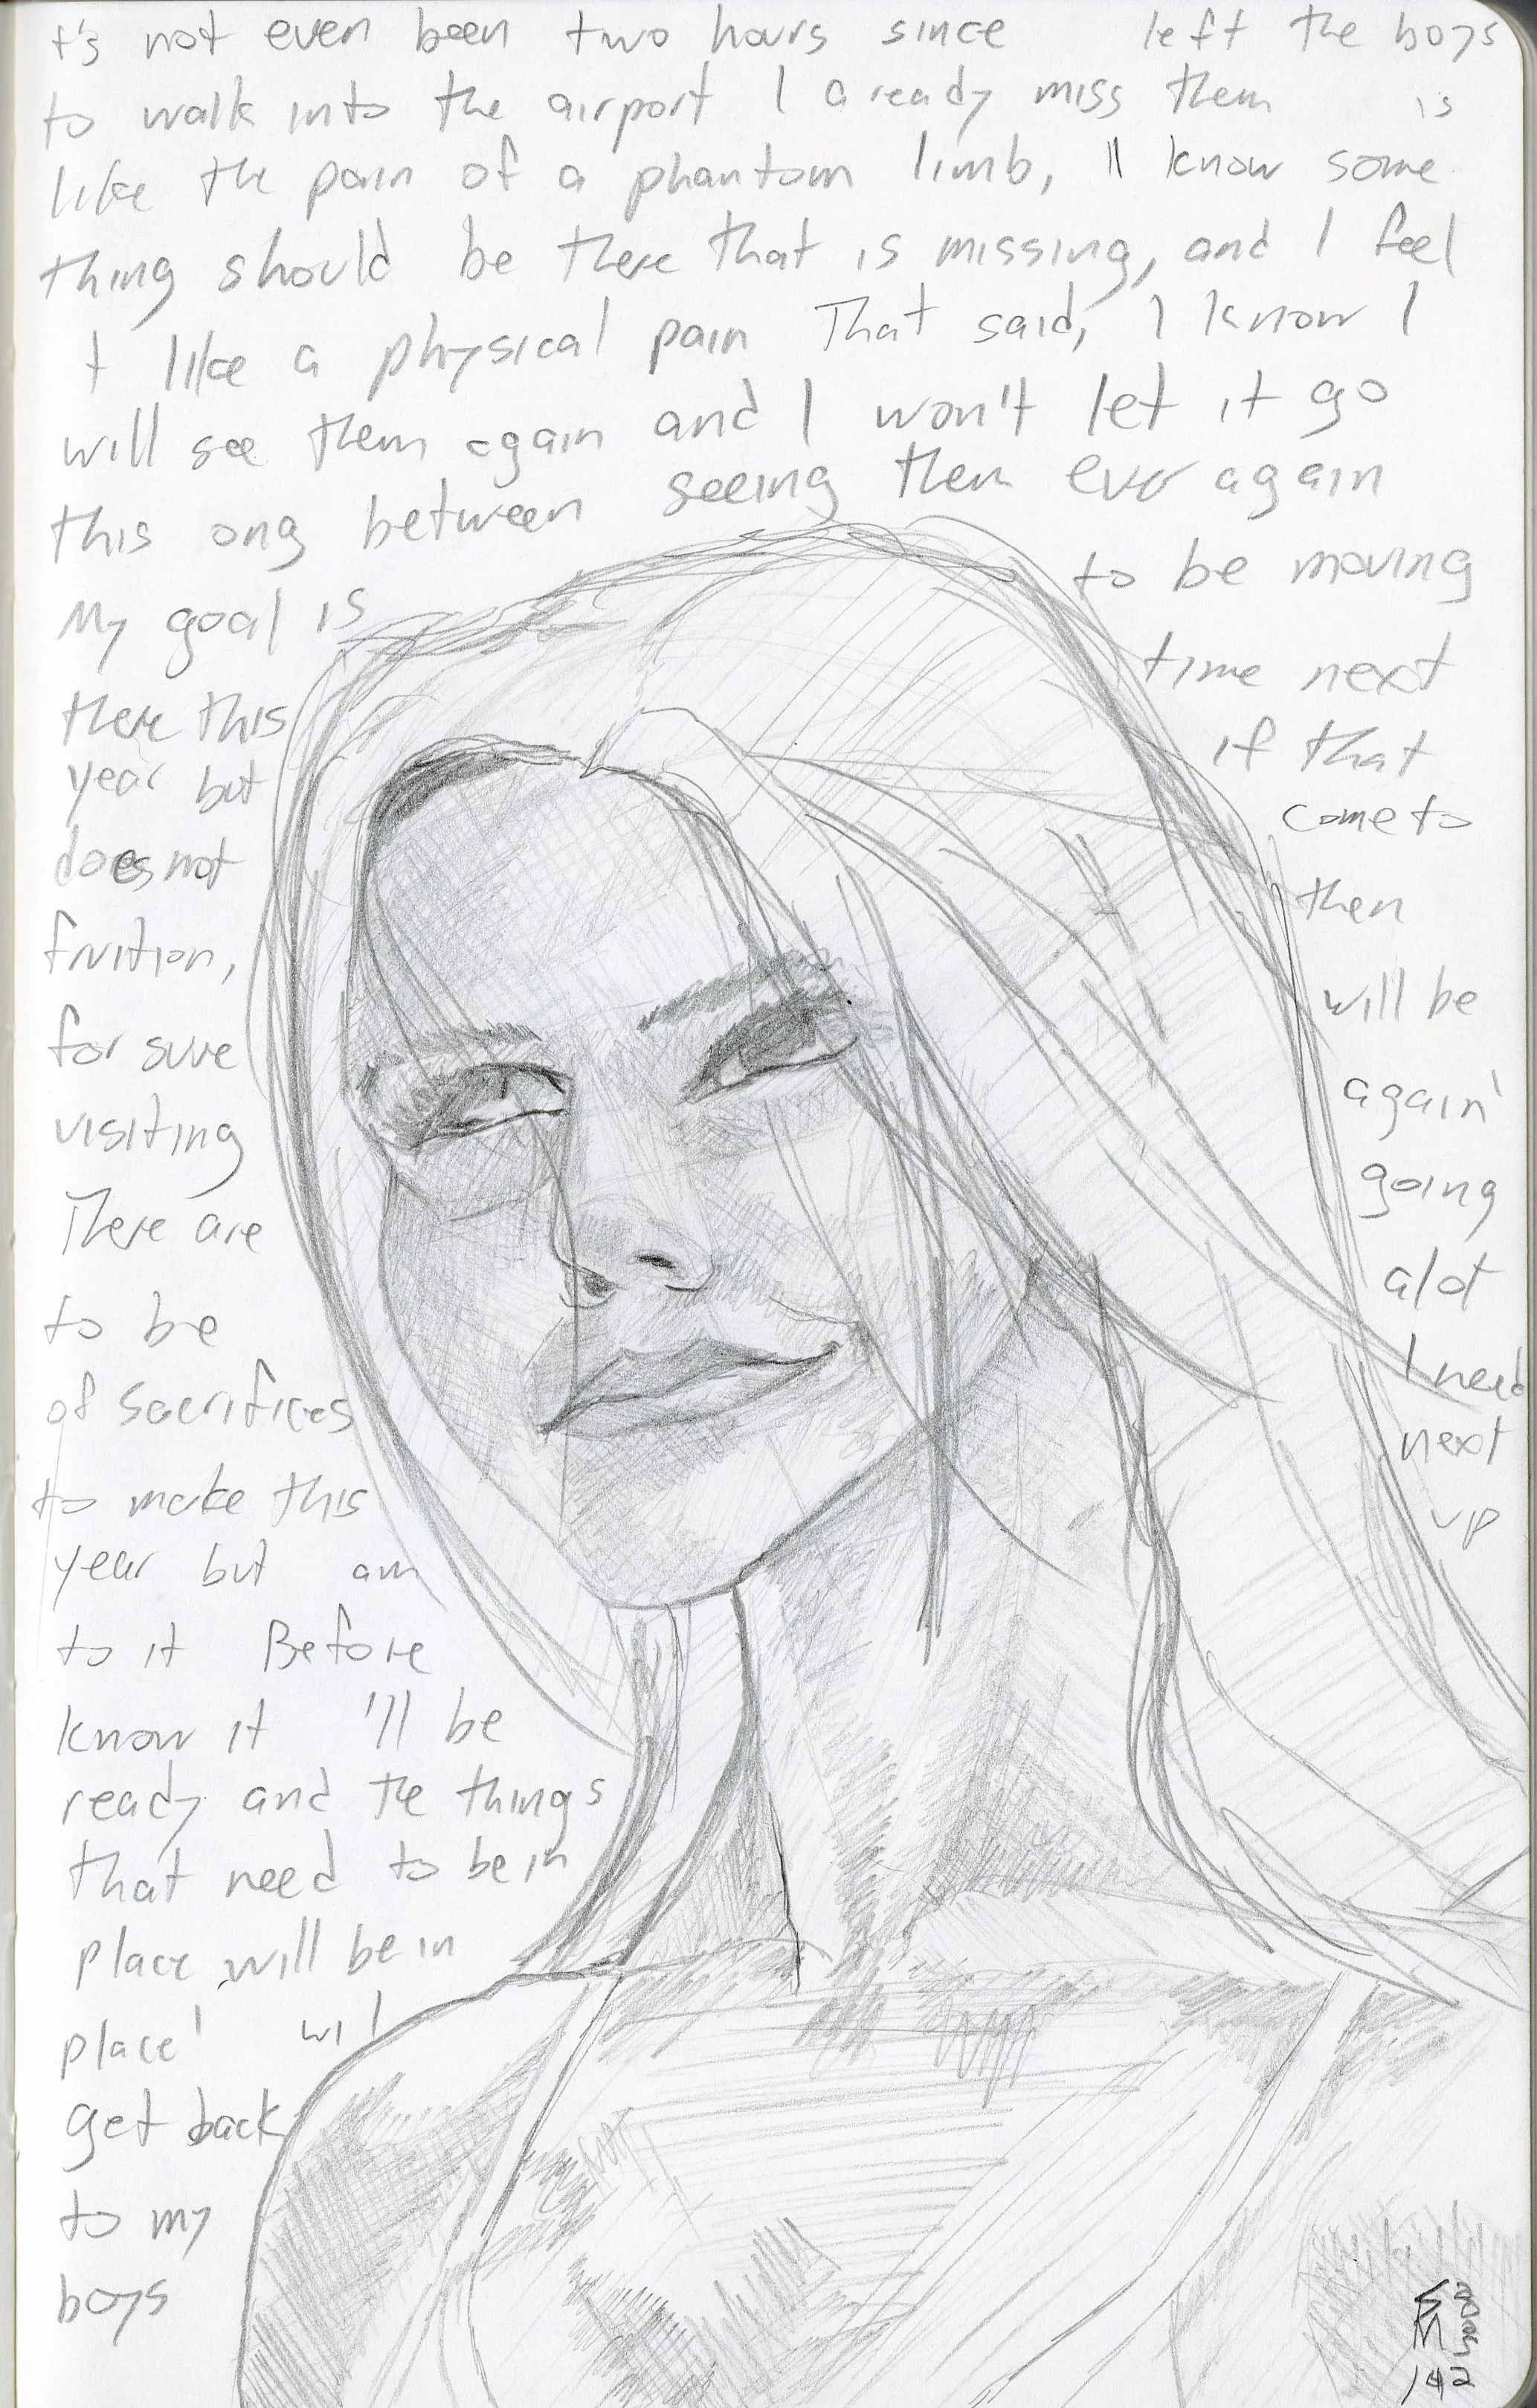 t's not even been two hours since left the boys
to walk into the airport I a ready miss them is
like the pain of a phantom limb, ll know some
thing should be there that is missing, and I feel
t like a physical pain That said, I know I
will see them again and I won't let it go
this ong between seeing them ever again
My goal is to be moving
there this time next
year but if that
does not come to
fruition, then
for sure will be
visiting again
There are going
to be alot
of sacrifices I need
to make this next
year but am up
to it Before
know it 'll be
ready and the things
that need to be in
place will be in
place' wil
get back
to my
boys